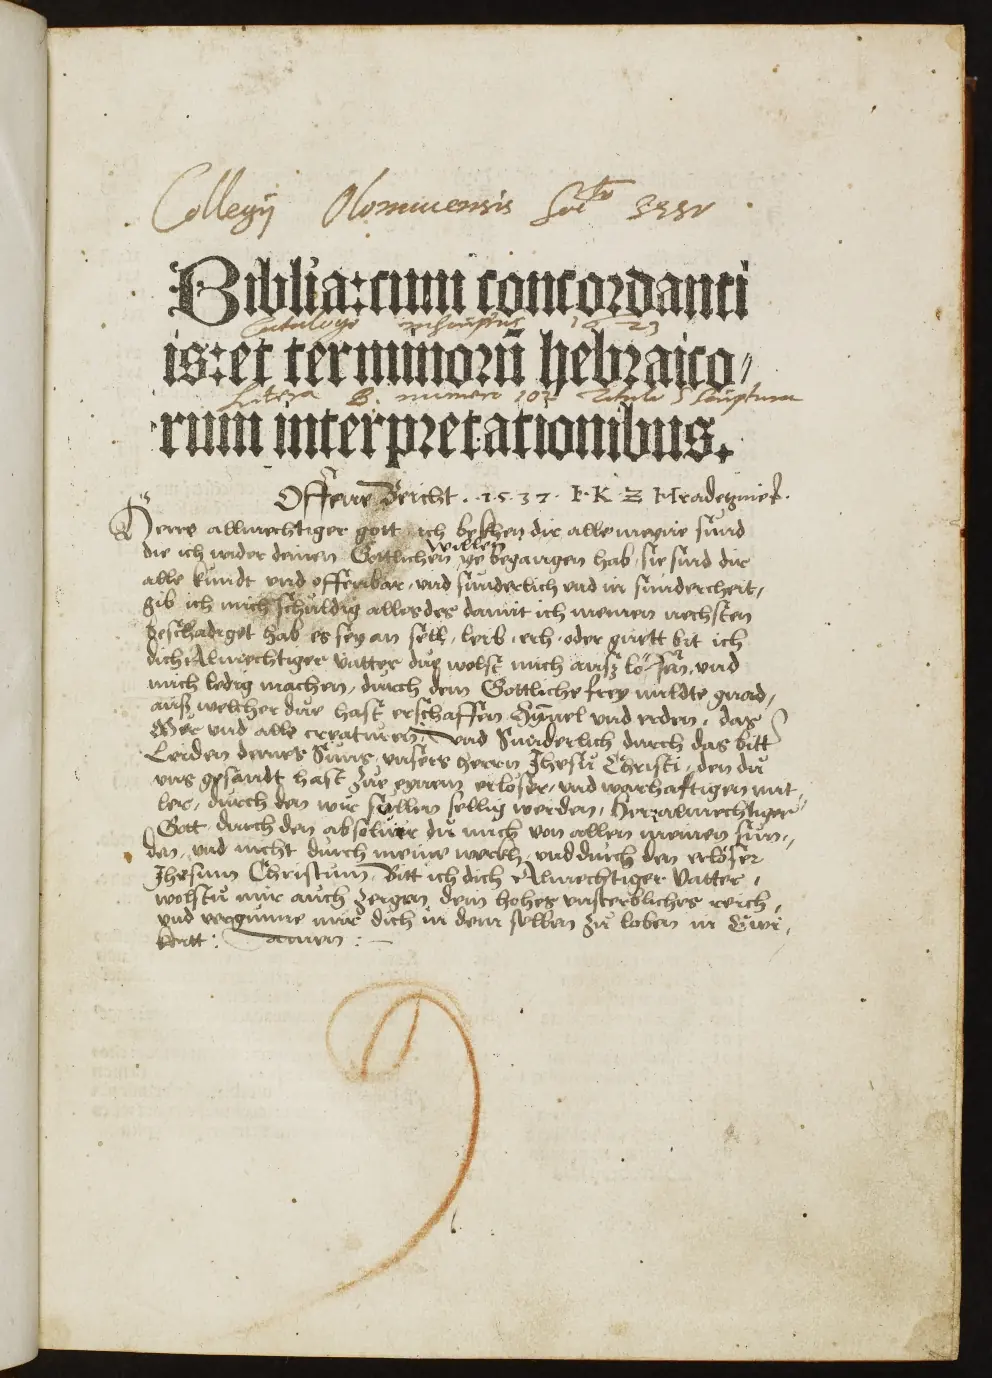 Collegij Olomucensis Soc^tis
Biblia: cum concordanti
Catalogo inscriptus 16 23
is: et terminorū hebraico/
Litera B. numero 103 Titulo S Scriptura
rum interpretationibus.
Offene Beicht . 1 5 3 7 .
Herre allmechtiger gott ich bekhen dir alle meyne sünd
willen
die ich wider deinen Gottlichen ye begangen hab, sie sind dir
alle kündt und offenbar, und sünderlich und in sünderheit,
gib ich mich schüldig alles des damit ich meinen nechsten
geschadiget hab es sey an sell, leib, erh, oder guett bit ich
dich Almechtiger vatter düe wolst mich auß lößen, und
mich ledig machen, dürch dein Gottliche frey mildte gnad,
auß welcher düe hast erschaffen Hymel und erden, das
Mör und alle creaturen, Und Sünderlich dürch das bitt
Leiden deines Süns, unsers herrn Jhesü Christi, den dü
uns gesandt hast züe eynem erlöser, und warhafftigen mit,
ler, dürch den wir sollen sellig werden, Herr almechtiger
Gott, dürch den absolvier dü mich von allen meinen sün,
den, und nicht dürch meine werckh, und dürch den erlößer
Jhesum Christum, Bitt ich dich Almechtiger Vatter,
wolstü mir auch zeigen dein hohes unsterbliches reich,
und vergünne mir dich in dem selben zü loben in Ewi,
keitt: Amen: